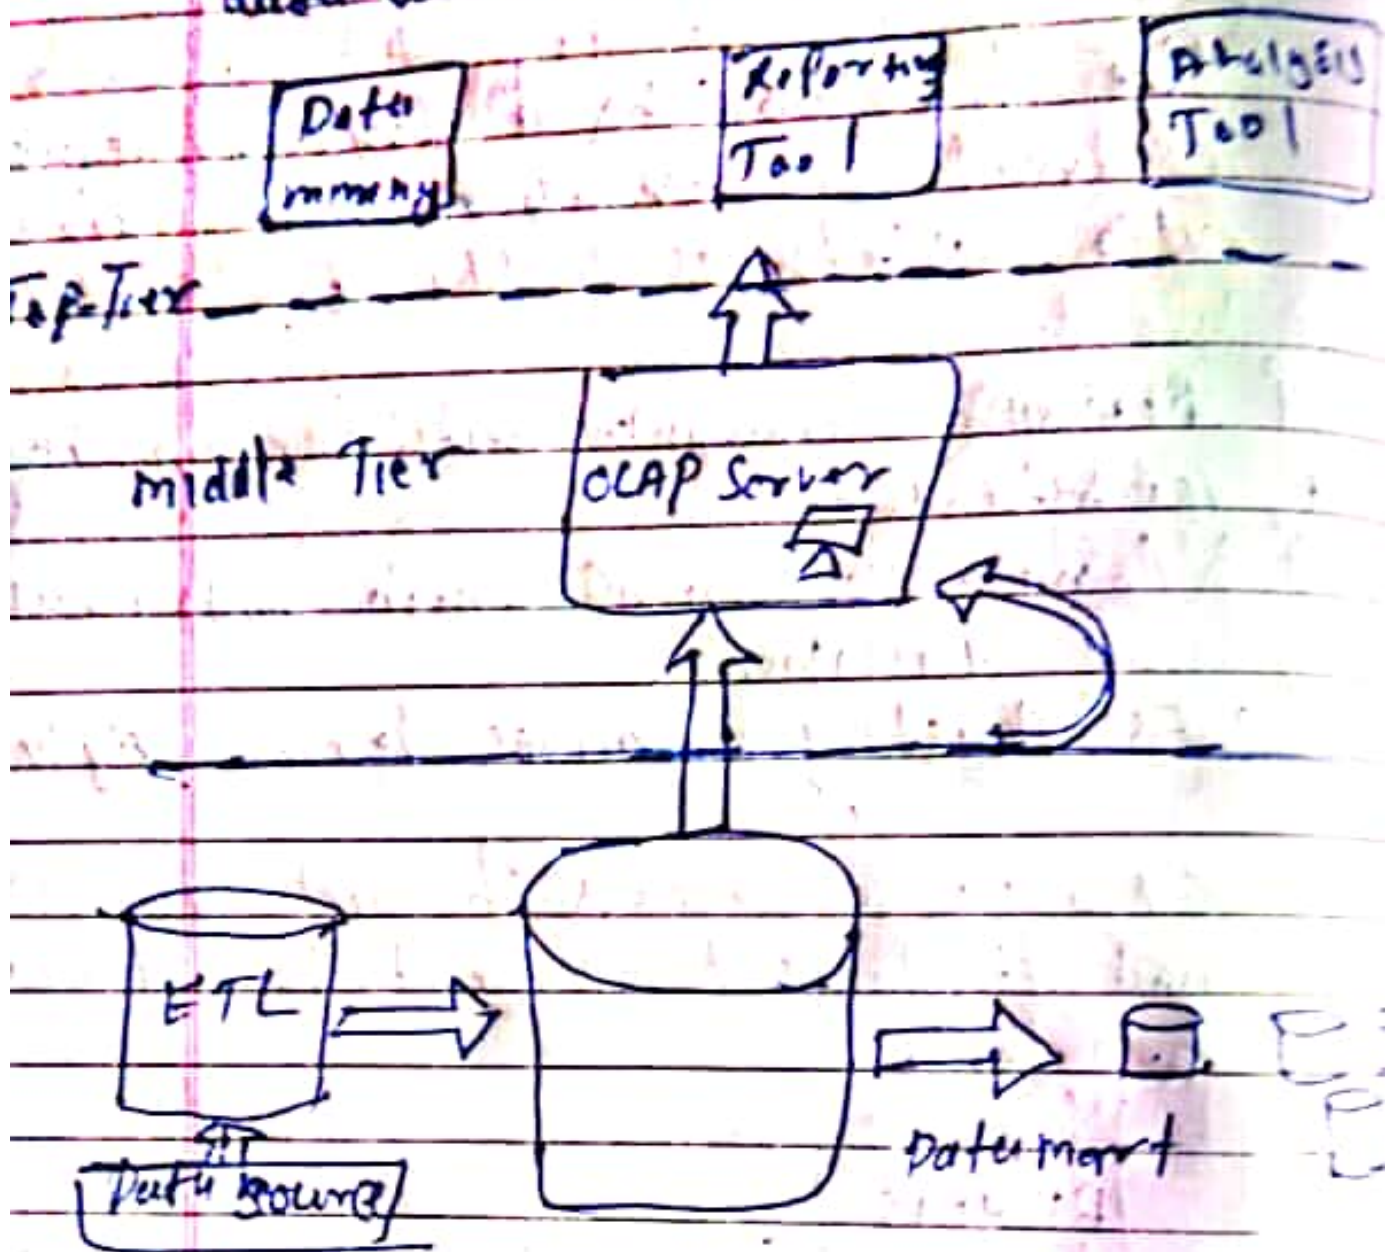 Data
mining
Reporting
Tool
Analysis
Tool
Top-Tier
middle Tier
OLAP Server
ETL
Data mart
Data source